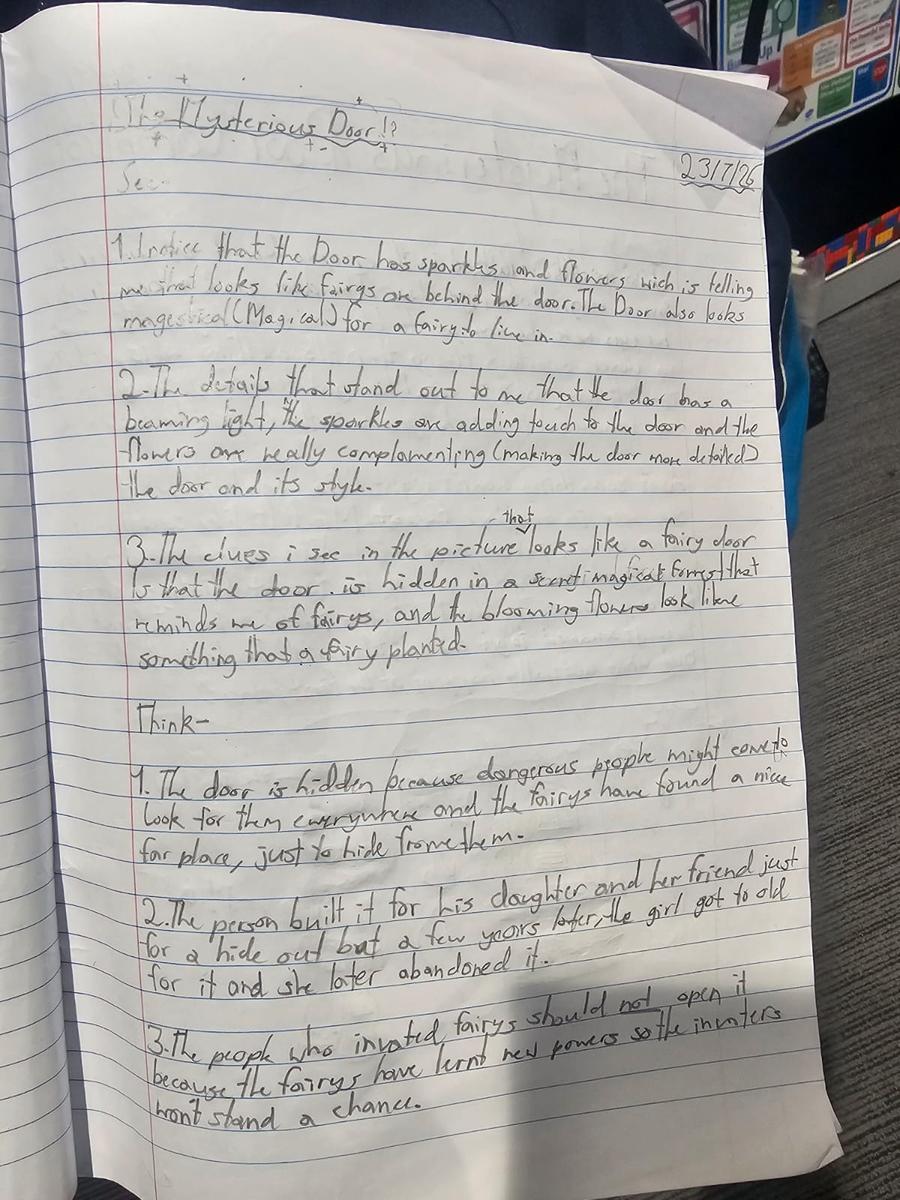 The Mysterious Door!?
23/7/26
See-
1. I notice that the Door has sparkles and flowers wich is telling
me that looks like fairys are behind the door. The Door also looks
magestical (Magical) for a fairy to live in.
2-The details that stand out to me that the door has a
beaming light, the sparkles are adding touch to the door and the
flowers are really complamenting (making the door more detailed)
the door and its style.
3-The clues i see in the picture that looks like a fairy door
Is that the door is hidden in a secret magical forrest that
reminds me of fairys, and the blooming flowers look like
something that a fairy planted.
Think-
1. The door is hidden because dangerous people might come to
Look for them everywhere and the fairys have found a nice
far place, just to hide frome them.
2. The person built it for his daughter and her friend just
for a hide out but a few years later, the girl got to old
for it and she later abandoned it.
3. The people who invated fairys should not open it
because the fairys have lernt new powers so the invaters
won't stand a chance.